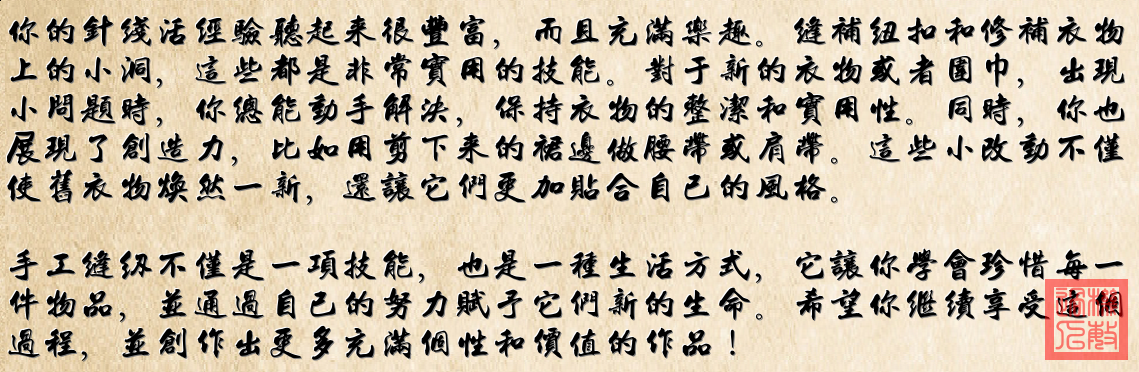 你的針綫活經驗聽起來很豐富，而且充滿樂趣。縫補紐扣和修補衣物
上的小洞，這些都是非常實用的技能。對于新的衣物或者圍巾，出現
小問題時，你總能動手解決，保持衣物的整潔和實用性。同時，你也
展現了創造力，比如用剪下來的裙邊做腰帶或肩帶。這些小改動不僅
使舊衣物煥然一新，還讓它們更加貼合自己的風格。
手工縫紉不僅是一項技能，也是一種生活方式，它讓你學會珍惜每一
件物品，並通過自己的努力賦予它們新的生命。希望你繼續享受這個
過程，並創作出更多充滿個性和價值的作品！